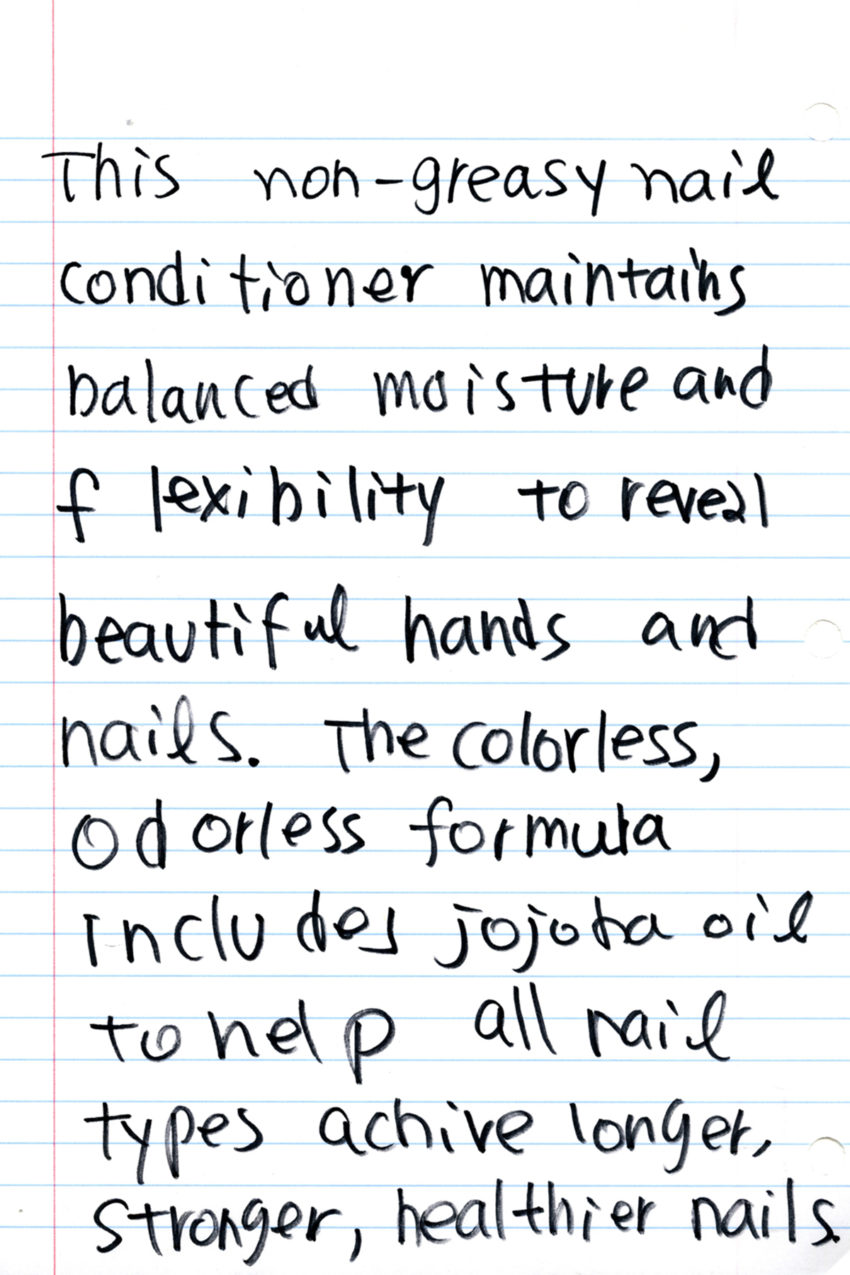 This non-greasy nail
conditioner maintains
balanced moisture and
flexibility to reveal
beautiful hands and
nails. The colorless,
odorless formula
includes jojoba oil
to help all nail
types achive longer,
stronger, healthier nails.